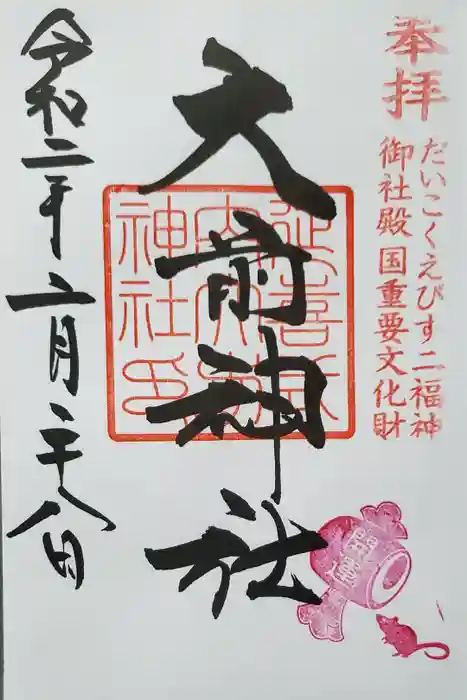 奉拝
だいこくえびす二福神
御社殿国重要文化財
大前神社
延喜式
内大前
神社印
開運
令和二年二月二十八日